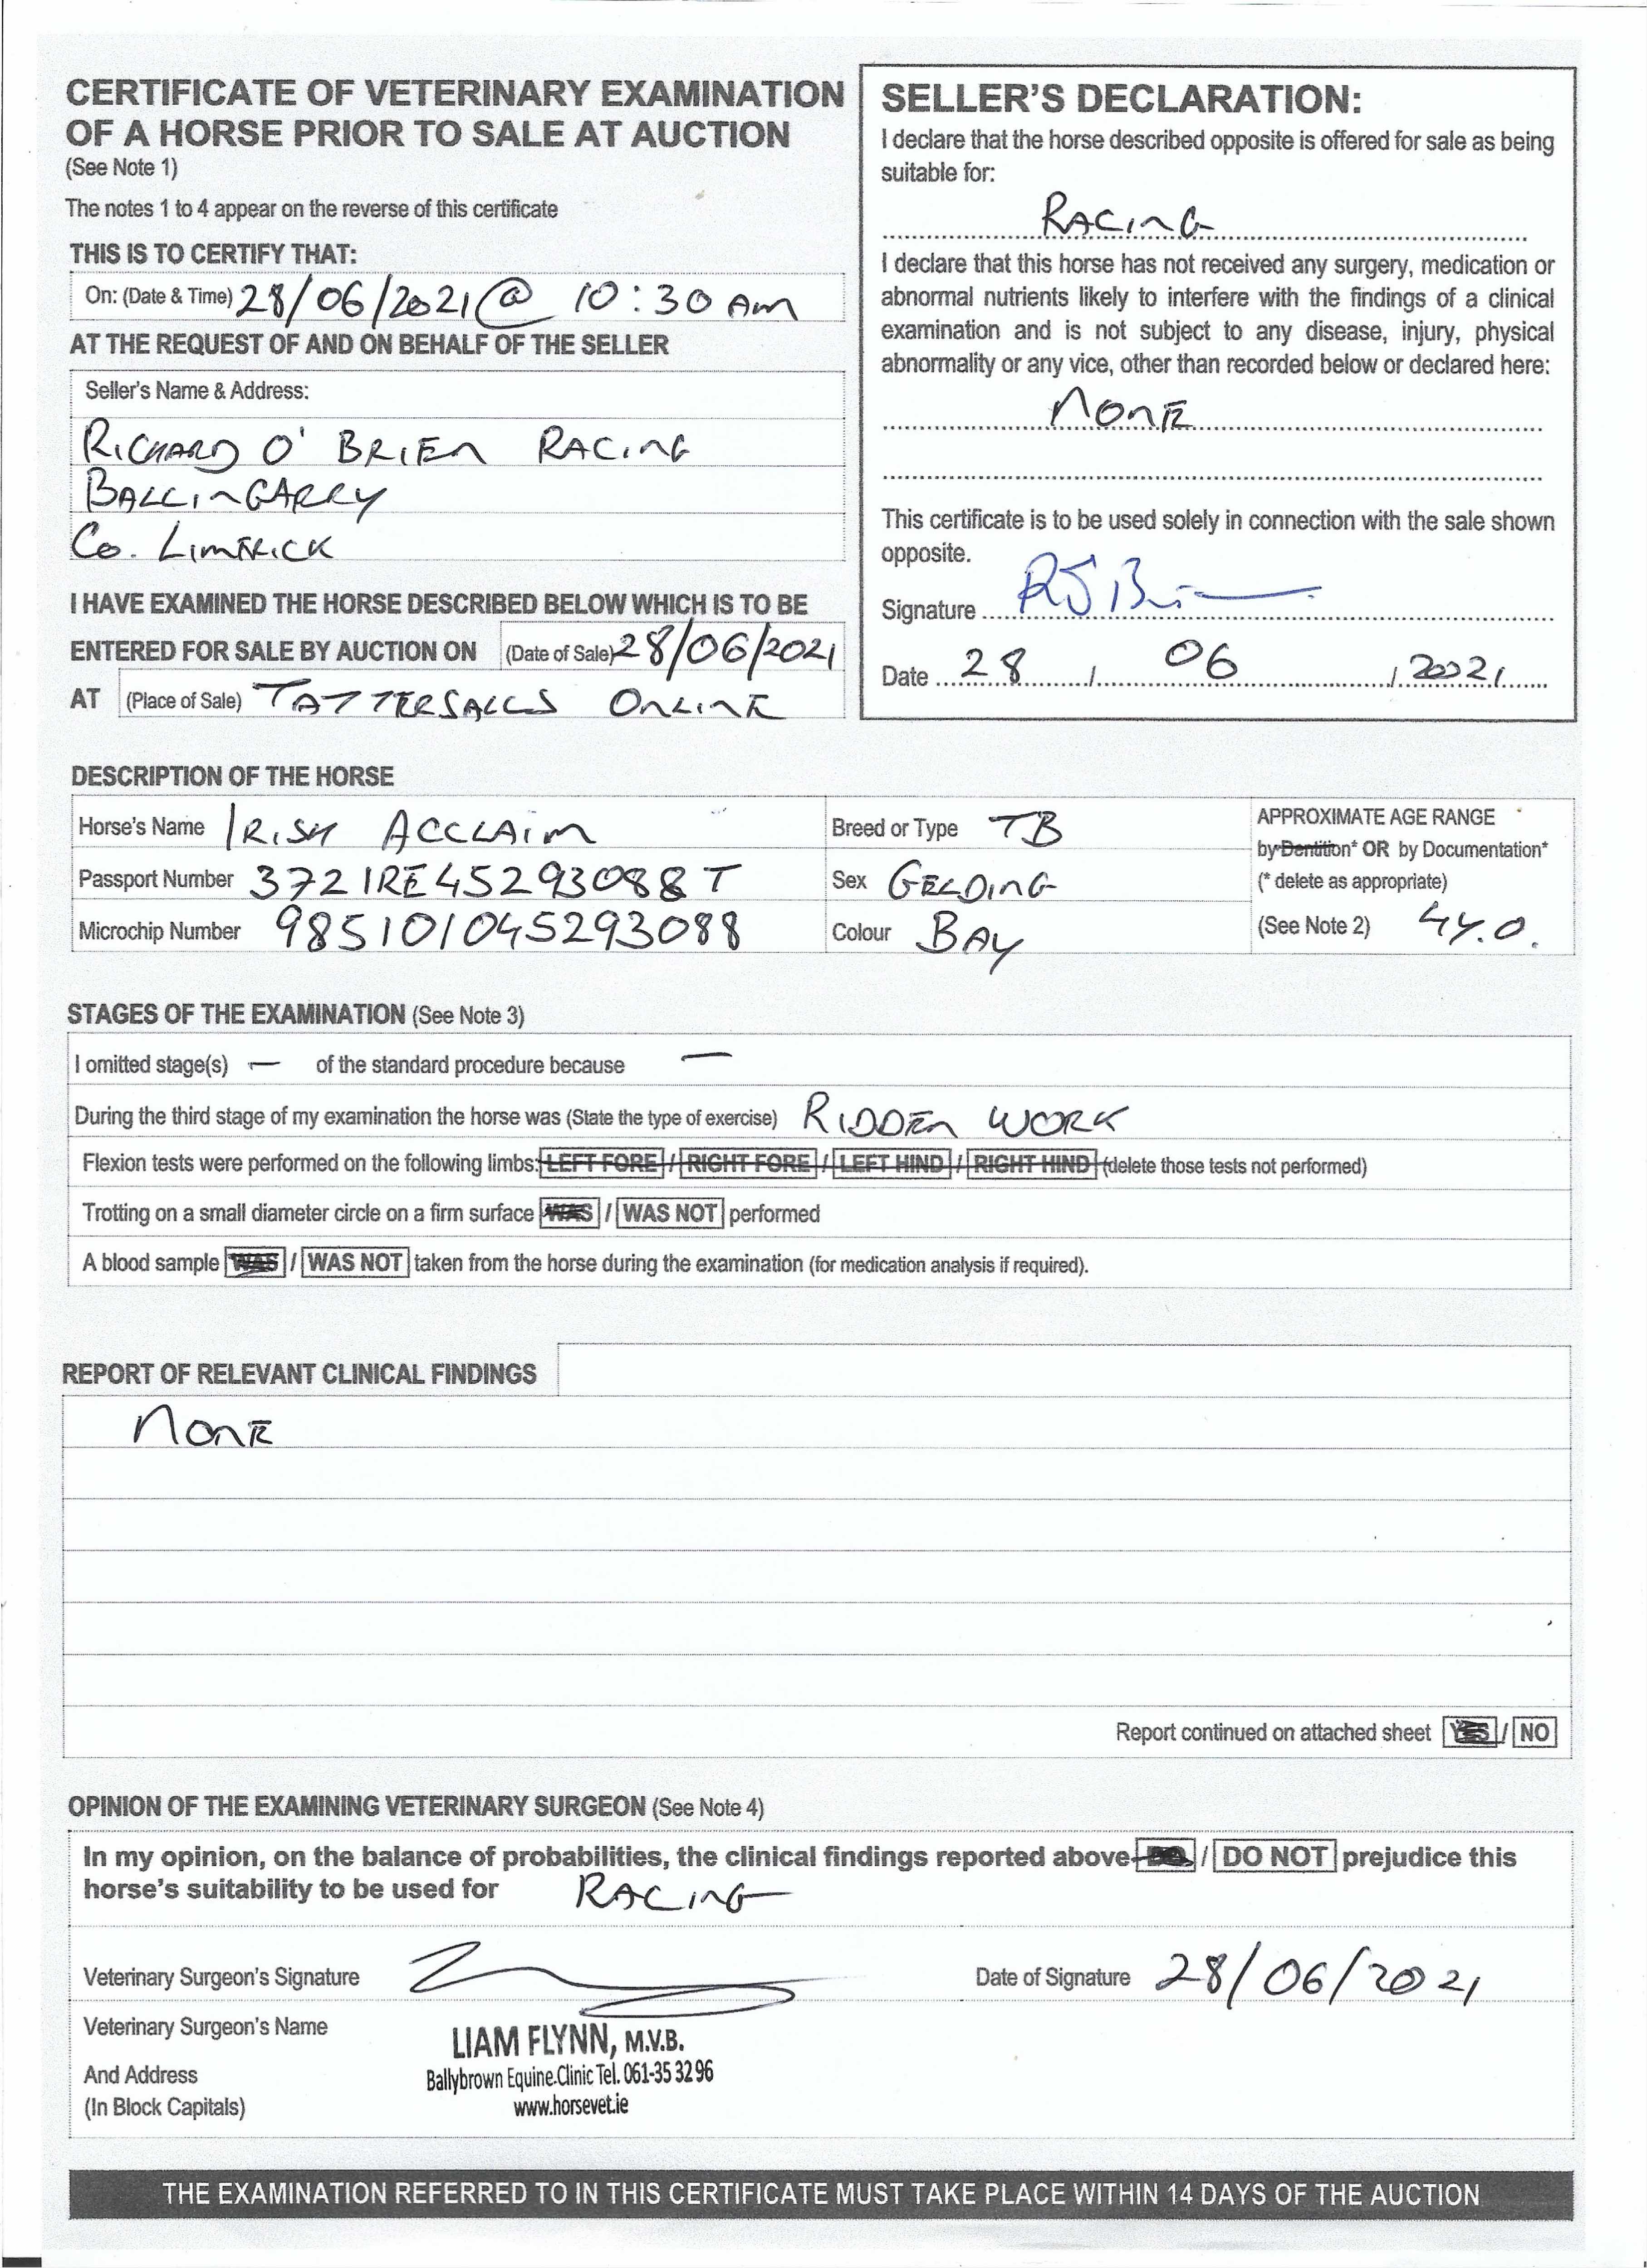 CERTIFICATE OF VETERINARY EXAMINATION
OF A HORSE PRIOR TO SALE AT AUCTION
(See Note 1)
The notes 1 to 4 appear on the reverse of this certificate
THIS IS TO CERTIFY THAT:
On: (Date & Time) 28/06/2021 @ 10:30 Am
AT THE REQUEST OF AND ON BEHALF OF THE SELLER
Seller's Name & Address:
RICHARD O' BRIEN RACING
BALLINGARRY
Co. LIMERICK
I HAVE EXAMINED THE HORSE DESCRIBED BELOW WHICH IS TO BE
ENTERED FOR SALE BY AUCTION ON (Date of Sale) 28/06/2021
AT (Place of Sale) TATTERSALLS ONLINE
SELLER'S DECLARATION:
I declare that the horse described opposite is offered for sale as being
suitable for:
RACING
I declare that this horse has not received any surgery, medication or
abnormal nutrients likely to interfere with the findings of a clinical
examination and is not subject to any disease, injury, physical
abnormality or any vice, other than recorded below or declared here:
NONE
This certificate is to be used solely in connection with the sale shown
opposite.
Signature
Date 28 / 06 / 2021
DESCRIPTION OF THE HORSE
Horse's Name IRISH ACCLAIM
Breed or Type TB
APPROXIMATE AGE RANGE
by Dentition* OR by Documentation*
Passport Number 372IRE45293088T
Sex GELDING
(* delete as appropriate)
Microchip Number 985101045293088
Colour BAY
(See Note 2) 4Y.O.
STAGES OF THE EXAMINATION (See Note 3)
I omitted stage(s) — of the standard procedure because —
During the third stage of my examination the horse was (State the type of exercise) RIDDEN WORK
Flexion tests were performed on the following limbs: LEFT FORE / RIGHT FORE / LEFT HIND / RIGHT HIND (delete those tests not performed)
Trotting on a small diameter circle on a firm surface WAS / WAS NOT performed
A blood sample WAS / WAS NOT taken from the horse during the examination (for medication analysis if required).
REPORT OF RELEVANT CLINICAL FINDINGS
NONE
Report continued on attached sheet YES / NO
OPINION OF THE EXAMINING VETERINARY SURGEON (See Note 4)
In my opinion, on the balance of probabilities, the clinical findings reported above DO / DO NOT prejudice this
horse's suitability to be used for RACING
Veterinary Surgeon's Signature
Date of Signature 28/06/2021
Veterinary Surgeon's Name
And Address
(In Block Capitals)
LIAM FLYNN, M.V.B.
Ballybrown Equine Clinic Tel. 061-35 32 96
www.horsevet.ie
THE EXAMINATION REFERRED TO IN THIS CERTIFICATE MUST TAKE PLACE WITHIN 14 DAYS OF THE AUCTION